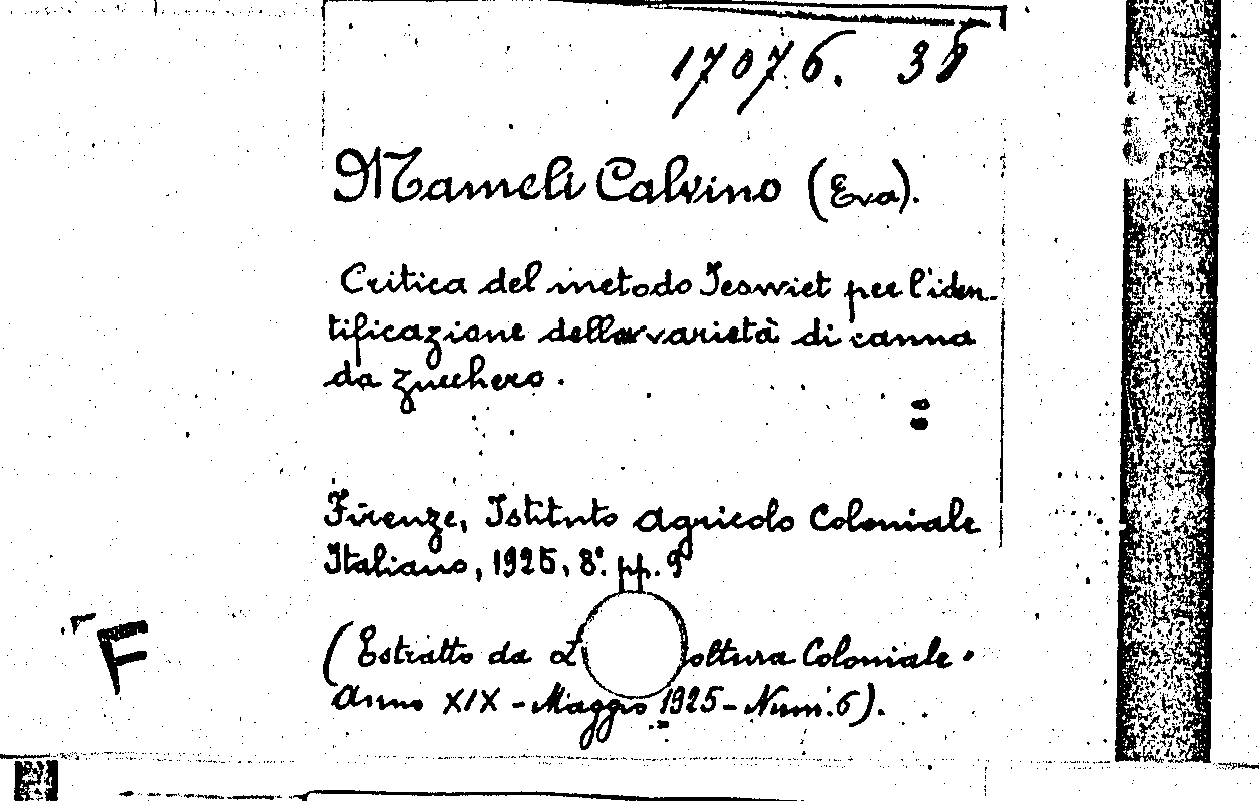 17076. 38
Mameli Calvino (Eva).
Critica del metodo Jeswiet per l'iden-
tificazione delle varietà di canna
da zucchero.
Firenze, Istituto Agricolo Coloniale
Italiano, 1925, 8°. pp. 9
(Estratto da L' oltura Coloniale.
Anno XIX - Maggio 1925 - Num. 6).
F